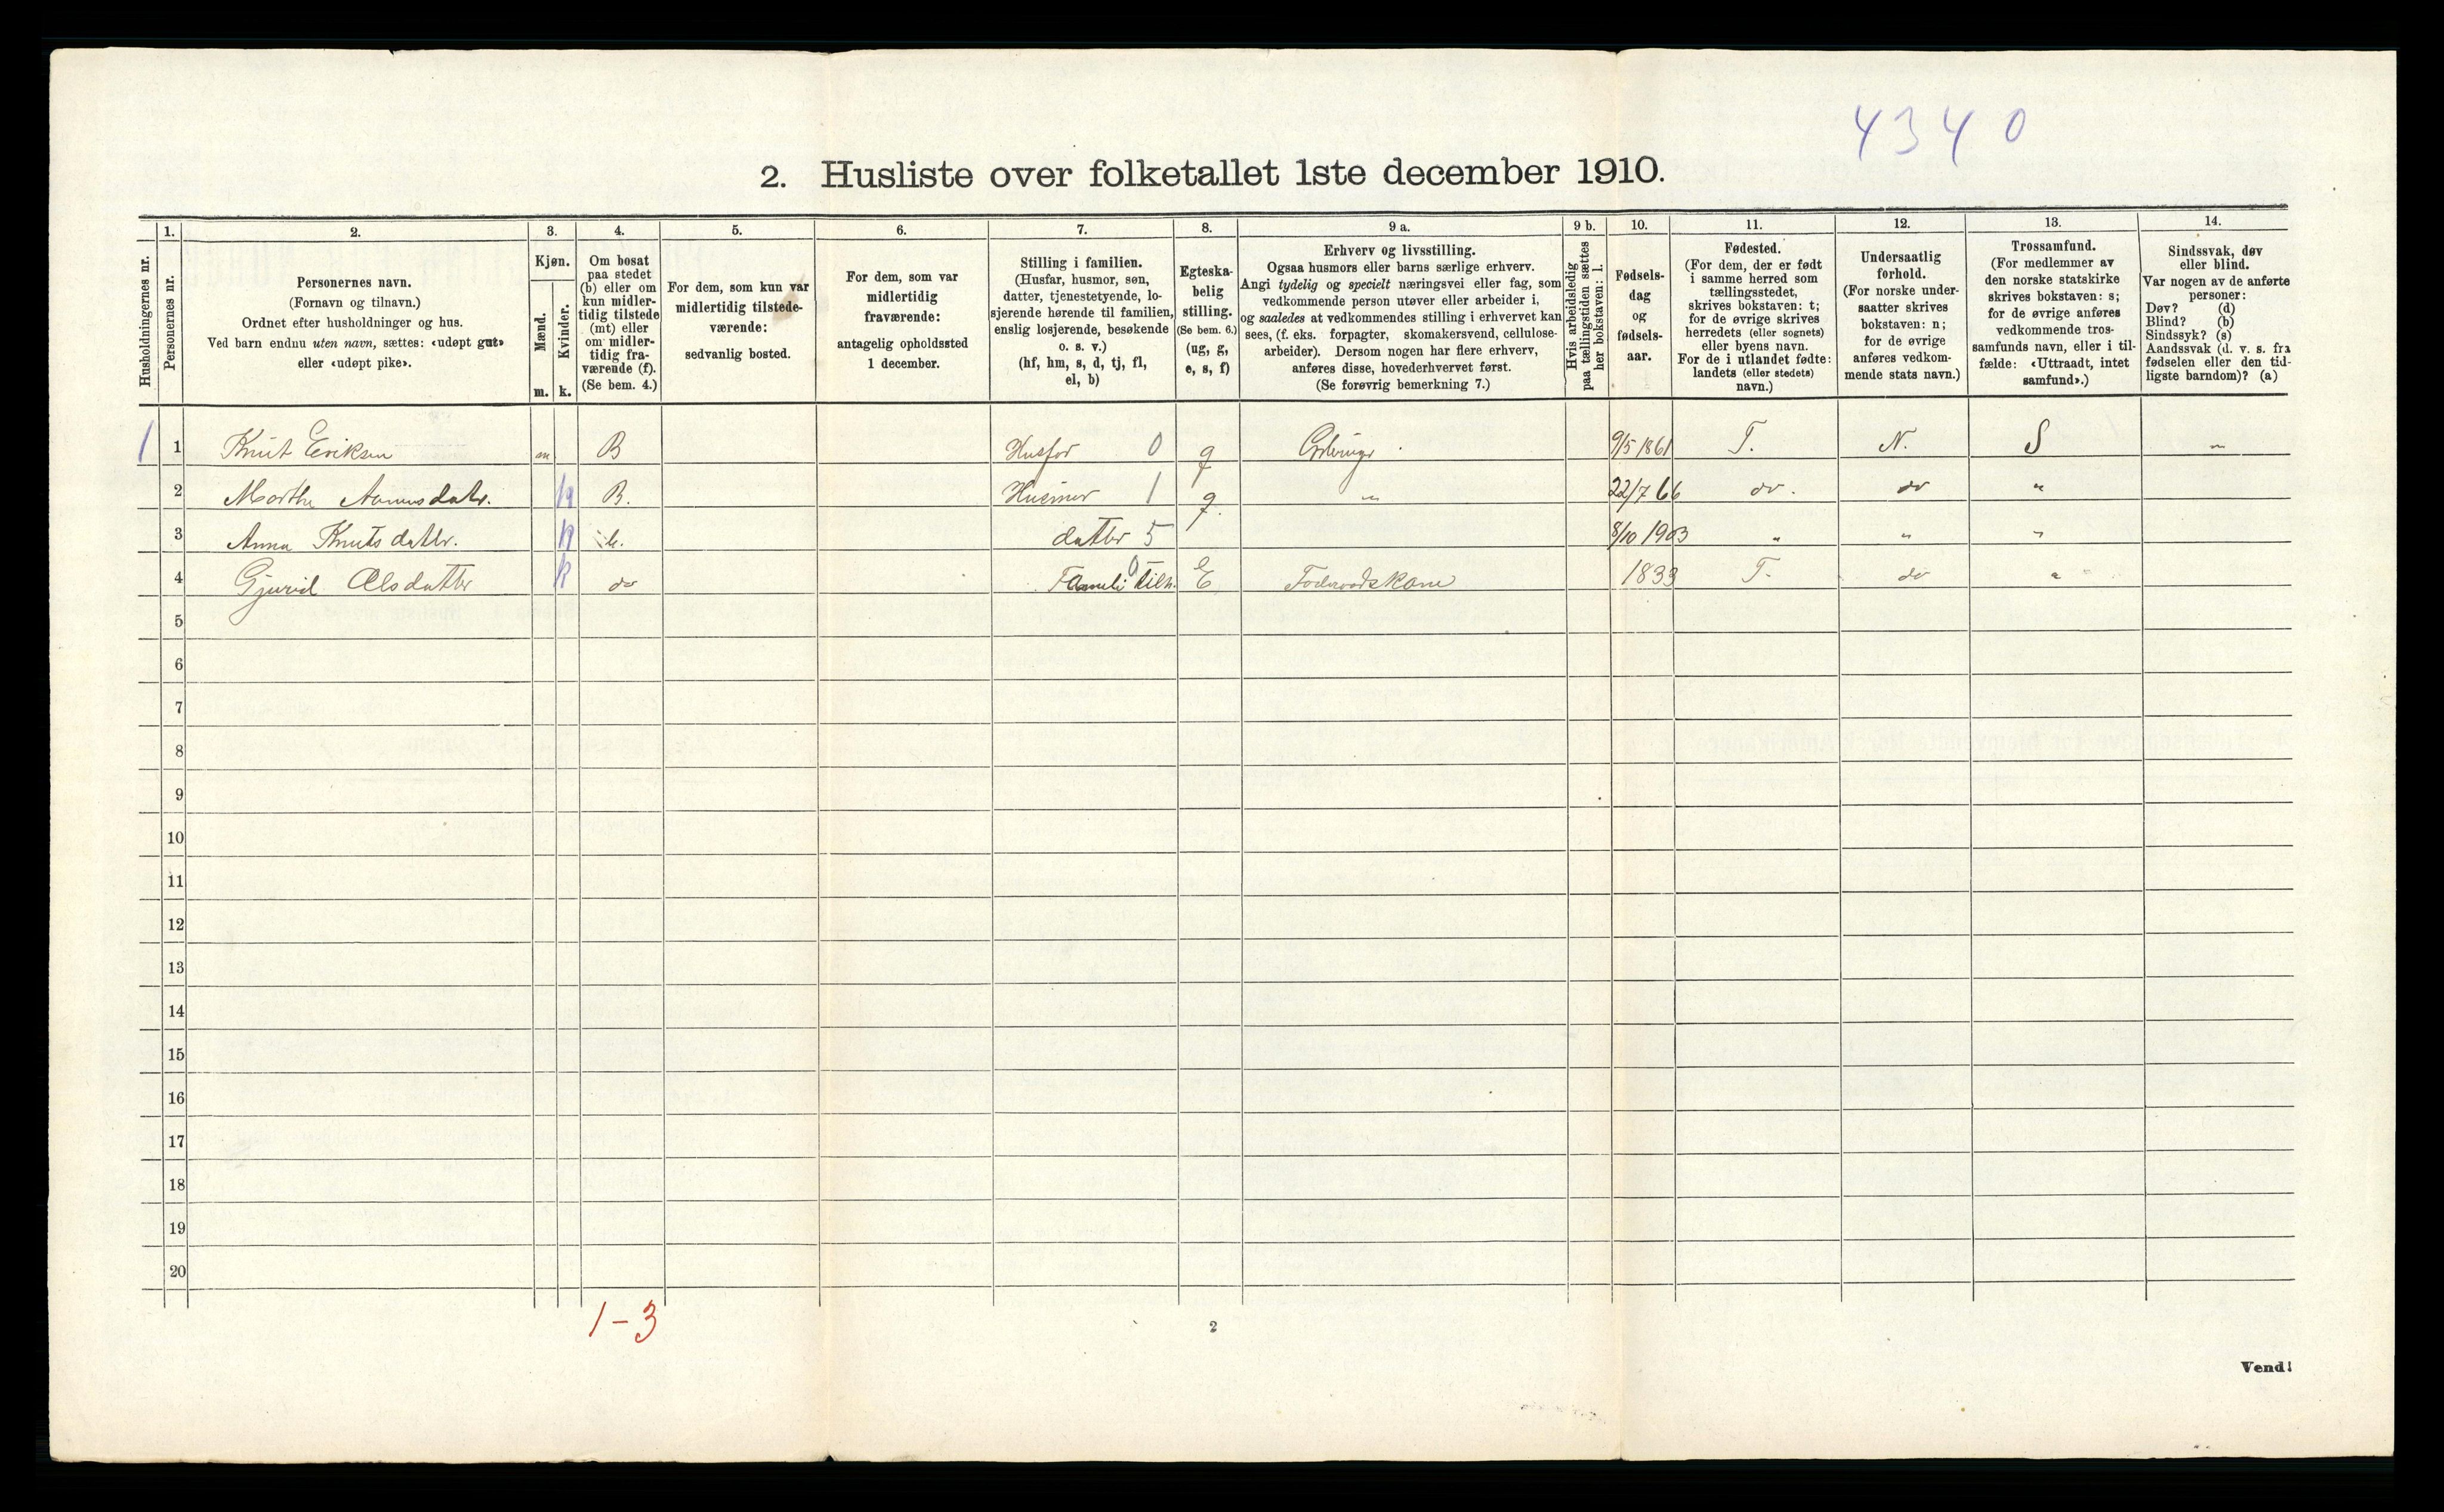 4340
2. Husliste over folketallet 1ste december 1910.
Husholdningernes nr.
1.
Personernes nr.
2.
Personernes navn.
(Fornavn og tilnavn.)
Ordnet efter husholdninger og hus.
Ved barn endnu uten navn, sættes: «udøpt gut»
eller «udøpt pike».
3.
Kjøn.
Mænd.
m.
Kvinder.
k.
4.
Om bosat
paa stedet
(b) eller om
kun midler-
tidig tilstede
(mt) eller
om midler-
tidig fra-
værende (f).
(Se bem. 4.)
5.
For dem, som kun var
midlertidig tilstede-
værende:
sedvanlig bosted.
6.
For dem, som var
midlertidig
fraværende:
antagelig opholdssted
1 december.
7.
Stilling i familien.
(Husfar, husmor, søn,
datter, tjenestetyende, lo-
sjerende hørende til familien,
enslig losjerende, besøkende
o. s. v.)
(hf, hm, s, d, tj, fl,
el, b)
8.
Egteska-
belig
stilling.
(Se bem. 6.)
(ug, g,
e, s, f)
9 a.
Erhverv og livsstilling.
Ogsaa husmors eller barns særlige erhverv.
Angi tydelig og specielt næringsvei eller fag, som
vedkommende person utøver eller arbeider i,
og saaledes at vedkommendes stilling i erhvervet kan
sees, (f. eks. forpagter, skomakersvend, cellulose-
arbeider). Dersom nogen har flere erhverv,
anføres disse, hovederhvervet først.
(Se forøvrig bemerkning 7.)
9 b.
Hvis arbeidsledig
paa tællingstiden sættes
her bokstaven: l.
10.
Fødsels-
dag
og
fødsels-
aar.
11.
Fødested.
(For dem, der er født
i samme herred som
tællingsstedet,
skrives bokstaven: t;
for de øvrige skrives
herredets (eller sognets)
eller byens navn.
For de i utlandet fødte:
landets (eller stedets)
navn.)
12.
Undersaatlig
forhold.
(For norske under-
saatter skrives
bokstaven: n;
for de øvrige
anføres vedkom-
mende stats navn.)
13.
Trossamfund.
(For medlemmer av
den norske statskirke
skrives bokstaven: s;
for de øvrige anføres
vedkommende tros-
samfunds navn, eller i til-
fælde: «Uttraadt, intet
samfund».)
14.
Sindssvak, døv
eller blind.
Var nogen av de anførte
personer:
Døv? (d)
Blind? (b)
Sindssyk? (s)
Aandssvak (d. v. s. fra
fødselen eller den tid-
ligste barndom)? (a)
1 1 Knut Eriksen m B Husfar 0 g 9/5 1861 T. N. S "
2 Marthe k B. Husmor 1 g " 22/7 66 do. do "
3 Anna Knutsdatter. k b. datter 5 8/10 1903 " " "
4 Gjurid Olsdatter k do Famili tilh. 0 E Foderaadskone 1833 T. do "
5
6
7
8
9
10
11
12
13
14
15
16
17
18
19
20
1-3
2
Vend!